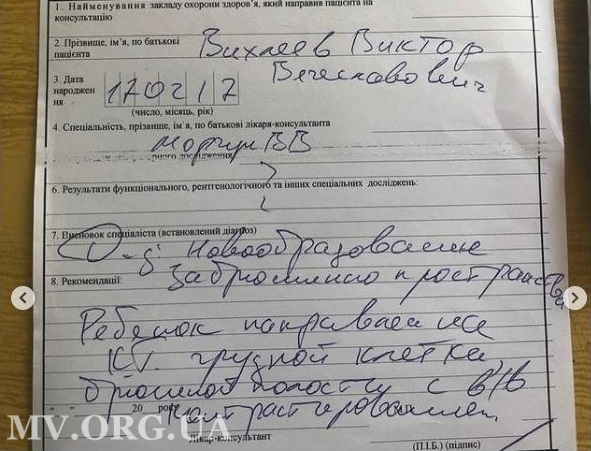 1. Найменування закладу охорони здоров'я, який направив пацієнта на
консультацію
2. Прізвище, ім'я, по батькові Вихлеев Виктор
пацієнта Вячеславович
3. Дата
народжен
ня 170217
(число, місяць, рік)
4. Спеціальність, прізвище, ім'я, по батькові лікаря-консультанта
ВВ
6. Результати функціонального, рентгенологічного та інших спеціальних досліджень:
7. Висновок спеціаліста (встановлений діагноз)
D-s: Новообразование
забрюшинного пространства
8. Рекомендації:
Ребенок направлен на
КТ грудной клетки,
брюшной полости с в/в
контрастированием
" " 20 року
Лікар-консультант
(П.І.Б.) (підпис)
MV.ORG.UA